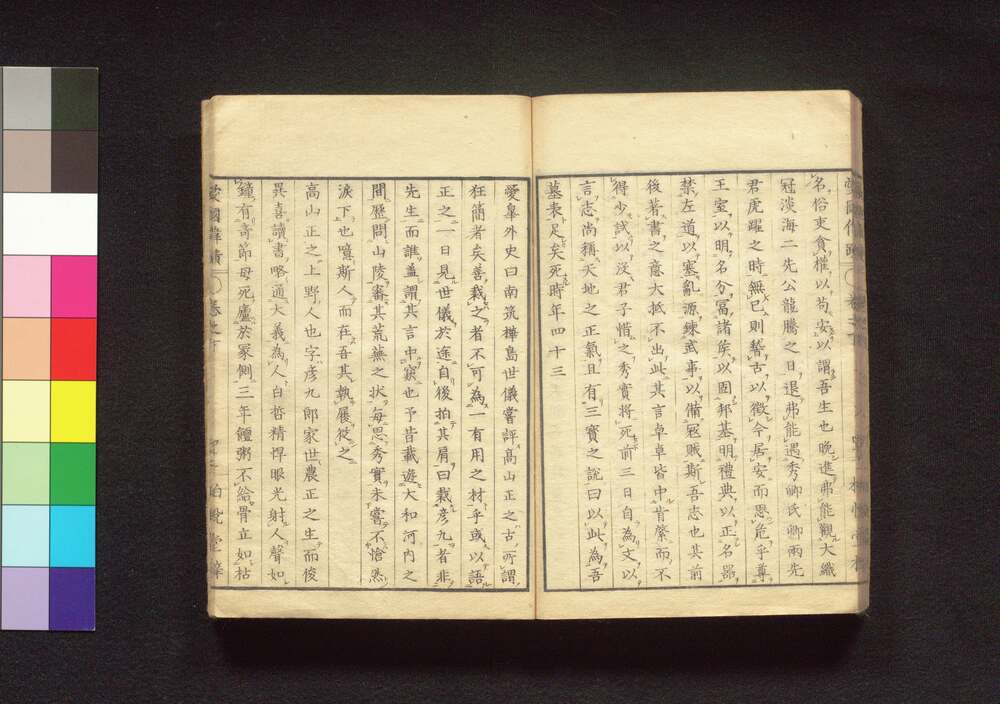 名俗吏貪權以苟安以謂吾生也晩進弗能觀大織
冠淡海二先公龍騰之日退弗能遇秀卿氏卿兩先
君虎躍之時無已則稽古以徵今居安而思危乎尊
王室以明名分富諸侯以固邦基明禮典以正名器
禁左道以塞亂源練武事以備冦賊斯吾志也其前
後著書之意大抵不出此其言卓卓皆中肯綮而不
得少試以沒君子惜之秀實將死前三日自為文以
言志尚稱天地之正氣且有三寶之說曰以此為吾
墓表足矣死時年四十三
愛皐外史曰南筑樺島世儀嘗評高山正之古所謂
狂簡者矣善裁之者不可為一有用之材乎或以語
正之一日見世儀於途自後拍其肩曰裁彦九者非
先生而誰蓋謂其言中窾也予昔載遊大和河内之
間歷問山陵審其荒蕪之狀每思秀實未嘗不愴悉
淚下也噫斯人而在吾其執履從之
高山正之上野人也字彦九郎家世農正之生而俊
異喜讀書略通大義為人白晳精悍眼光射人聲如
鐘有奇節母死廬於冢側三年饘粥不給骨立如枯
愛國偉績 卷之下